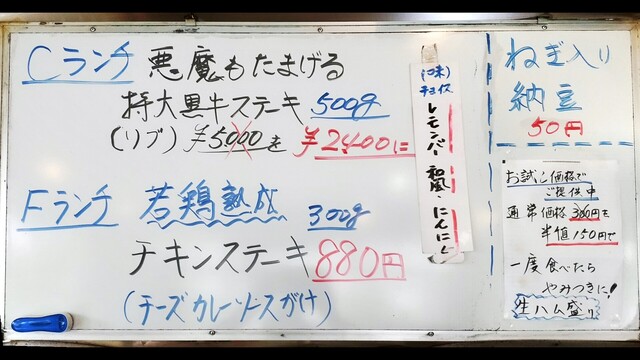 Cランチ 悪魔もたまげる
特大黒牛ステーキ 500g
(リブ) ¥5000を ¥2400に
(味)
チョイス
レモンバター 和風・にんにく
Fランチ 若鶏熟成 300g
チキンステーキ 880円
(チーズカレーソースがけ)
ねぎ入り
納豆
50円
お試し価格で
ご提供中
通常価格300円を
半値150円で
一度食べたら
やみつきに!
生ハム盛り